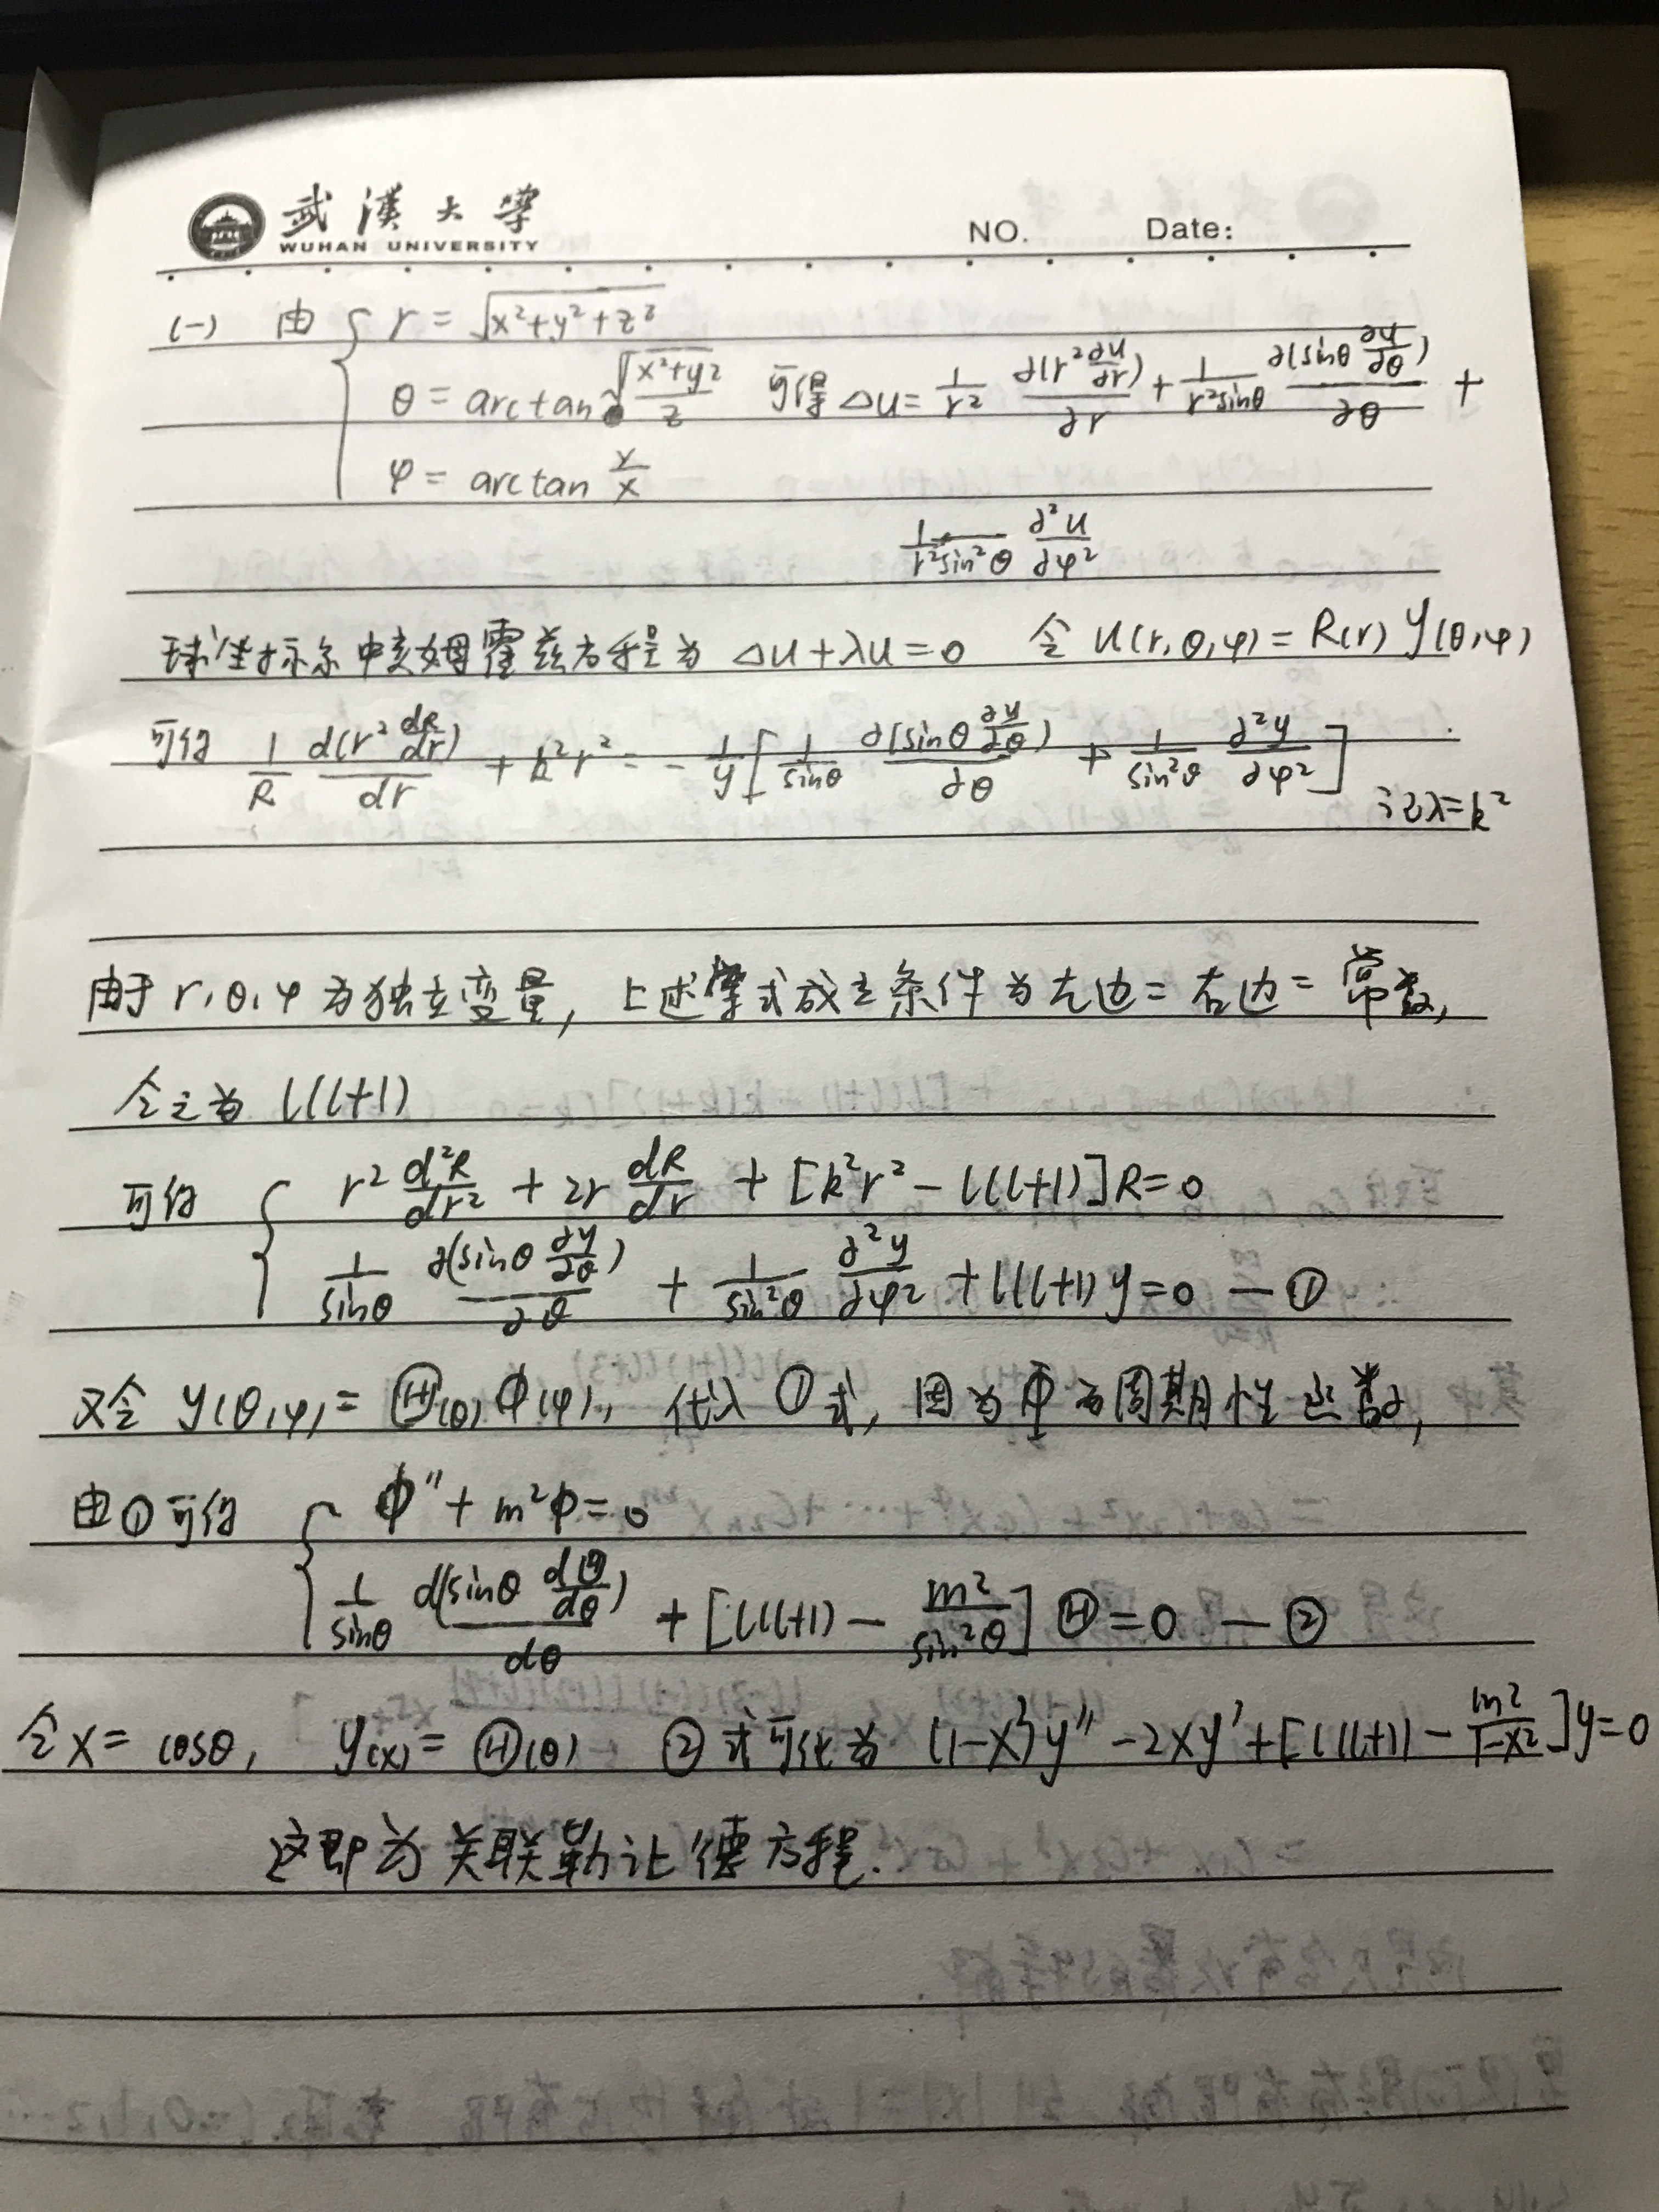 武漢大學
WUHAN UNIVERSITY
NO. Date:
(一) 由 { r = √(x²+y²+z²)
θ = arctan √(x²+y²)/z 可得 Δu = 1/r² ∂(r² ∂u/∂r)/∂r + 1/(r²sinθ) ∂(sinθ ∂u/∂θ)/∂θ +
φ = arctan y/x
1/(r²sin²θ) ∂²u/∂φ²
球坐标系中亥姆霍兹方程为 Δu+λu=0 令 u(r,θ,φ) = R(r) y(θ,φ)
可得 1/R d(r² dR/dr)/dr + k²r² = - 1/y [ 1/sinθ ∂(sinθ ∂y/∂θ)/∂θ + 1/sin²θ ∂²y/∂φ² ]
记λ=k²
由于 r,θ,φ 为独立变量, 上述等式成立条件为左边=右边=常数,
令之为 l(l+1)
可得 { r² d²R/dr² + 2r dR/dr + [k²r² - l(l+1)]R=0
1/sinθ ∂(sinθ ∂y/∂θ)/∂θ + 1/sin²θ ∂²y/∂φ² + l(l+1)y=0 — ①
又令 y(θ,φ) = Θ(θ)Φ(φ), 代入①式, 因为Φ为周期性函数,
由①可得 { Φ''+m²Φ=0
1/sinθ d(sinθ dΘ/dθ)/dθ + [l(l+1) - m²/sin²θ] Θ=0 — ②
令 x = cosθ, y(x) = Θ(θ) ②式可化为 (1-x²)y'' -2xy'+[l(l+1) - m²/(1-x²)]y=0
这即为关联勒让德方程.